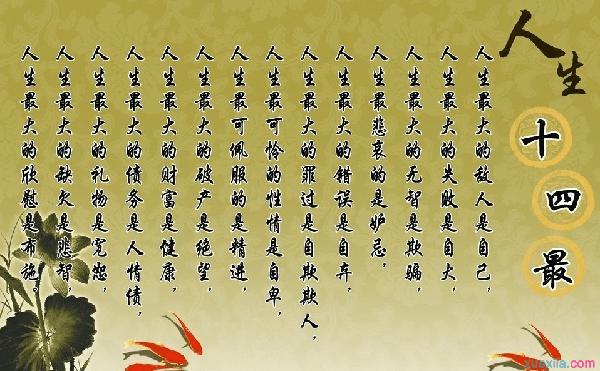 人生
十四最
人生最大的敌人是自己，
人生最大的失败是自大，
人生最大的无智是欺骗，
人生最悲哀的是妒忌，
人生最大的错误是自弃，
人生最大的罪过是自欺欺人，
人生最可怜的性情是自卑，
人生最可佩服的是精进
人生最大的破产是绝望，
人生最大的财富是健康，
人生最大的债务是人情债，
人生最大的礼物是宽恕，
人生最大的缺欠是悲智，
人生最大的欣慰是布施。
xuexila.com